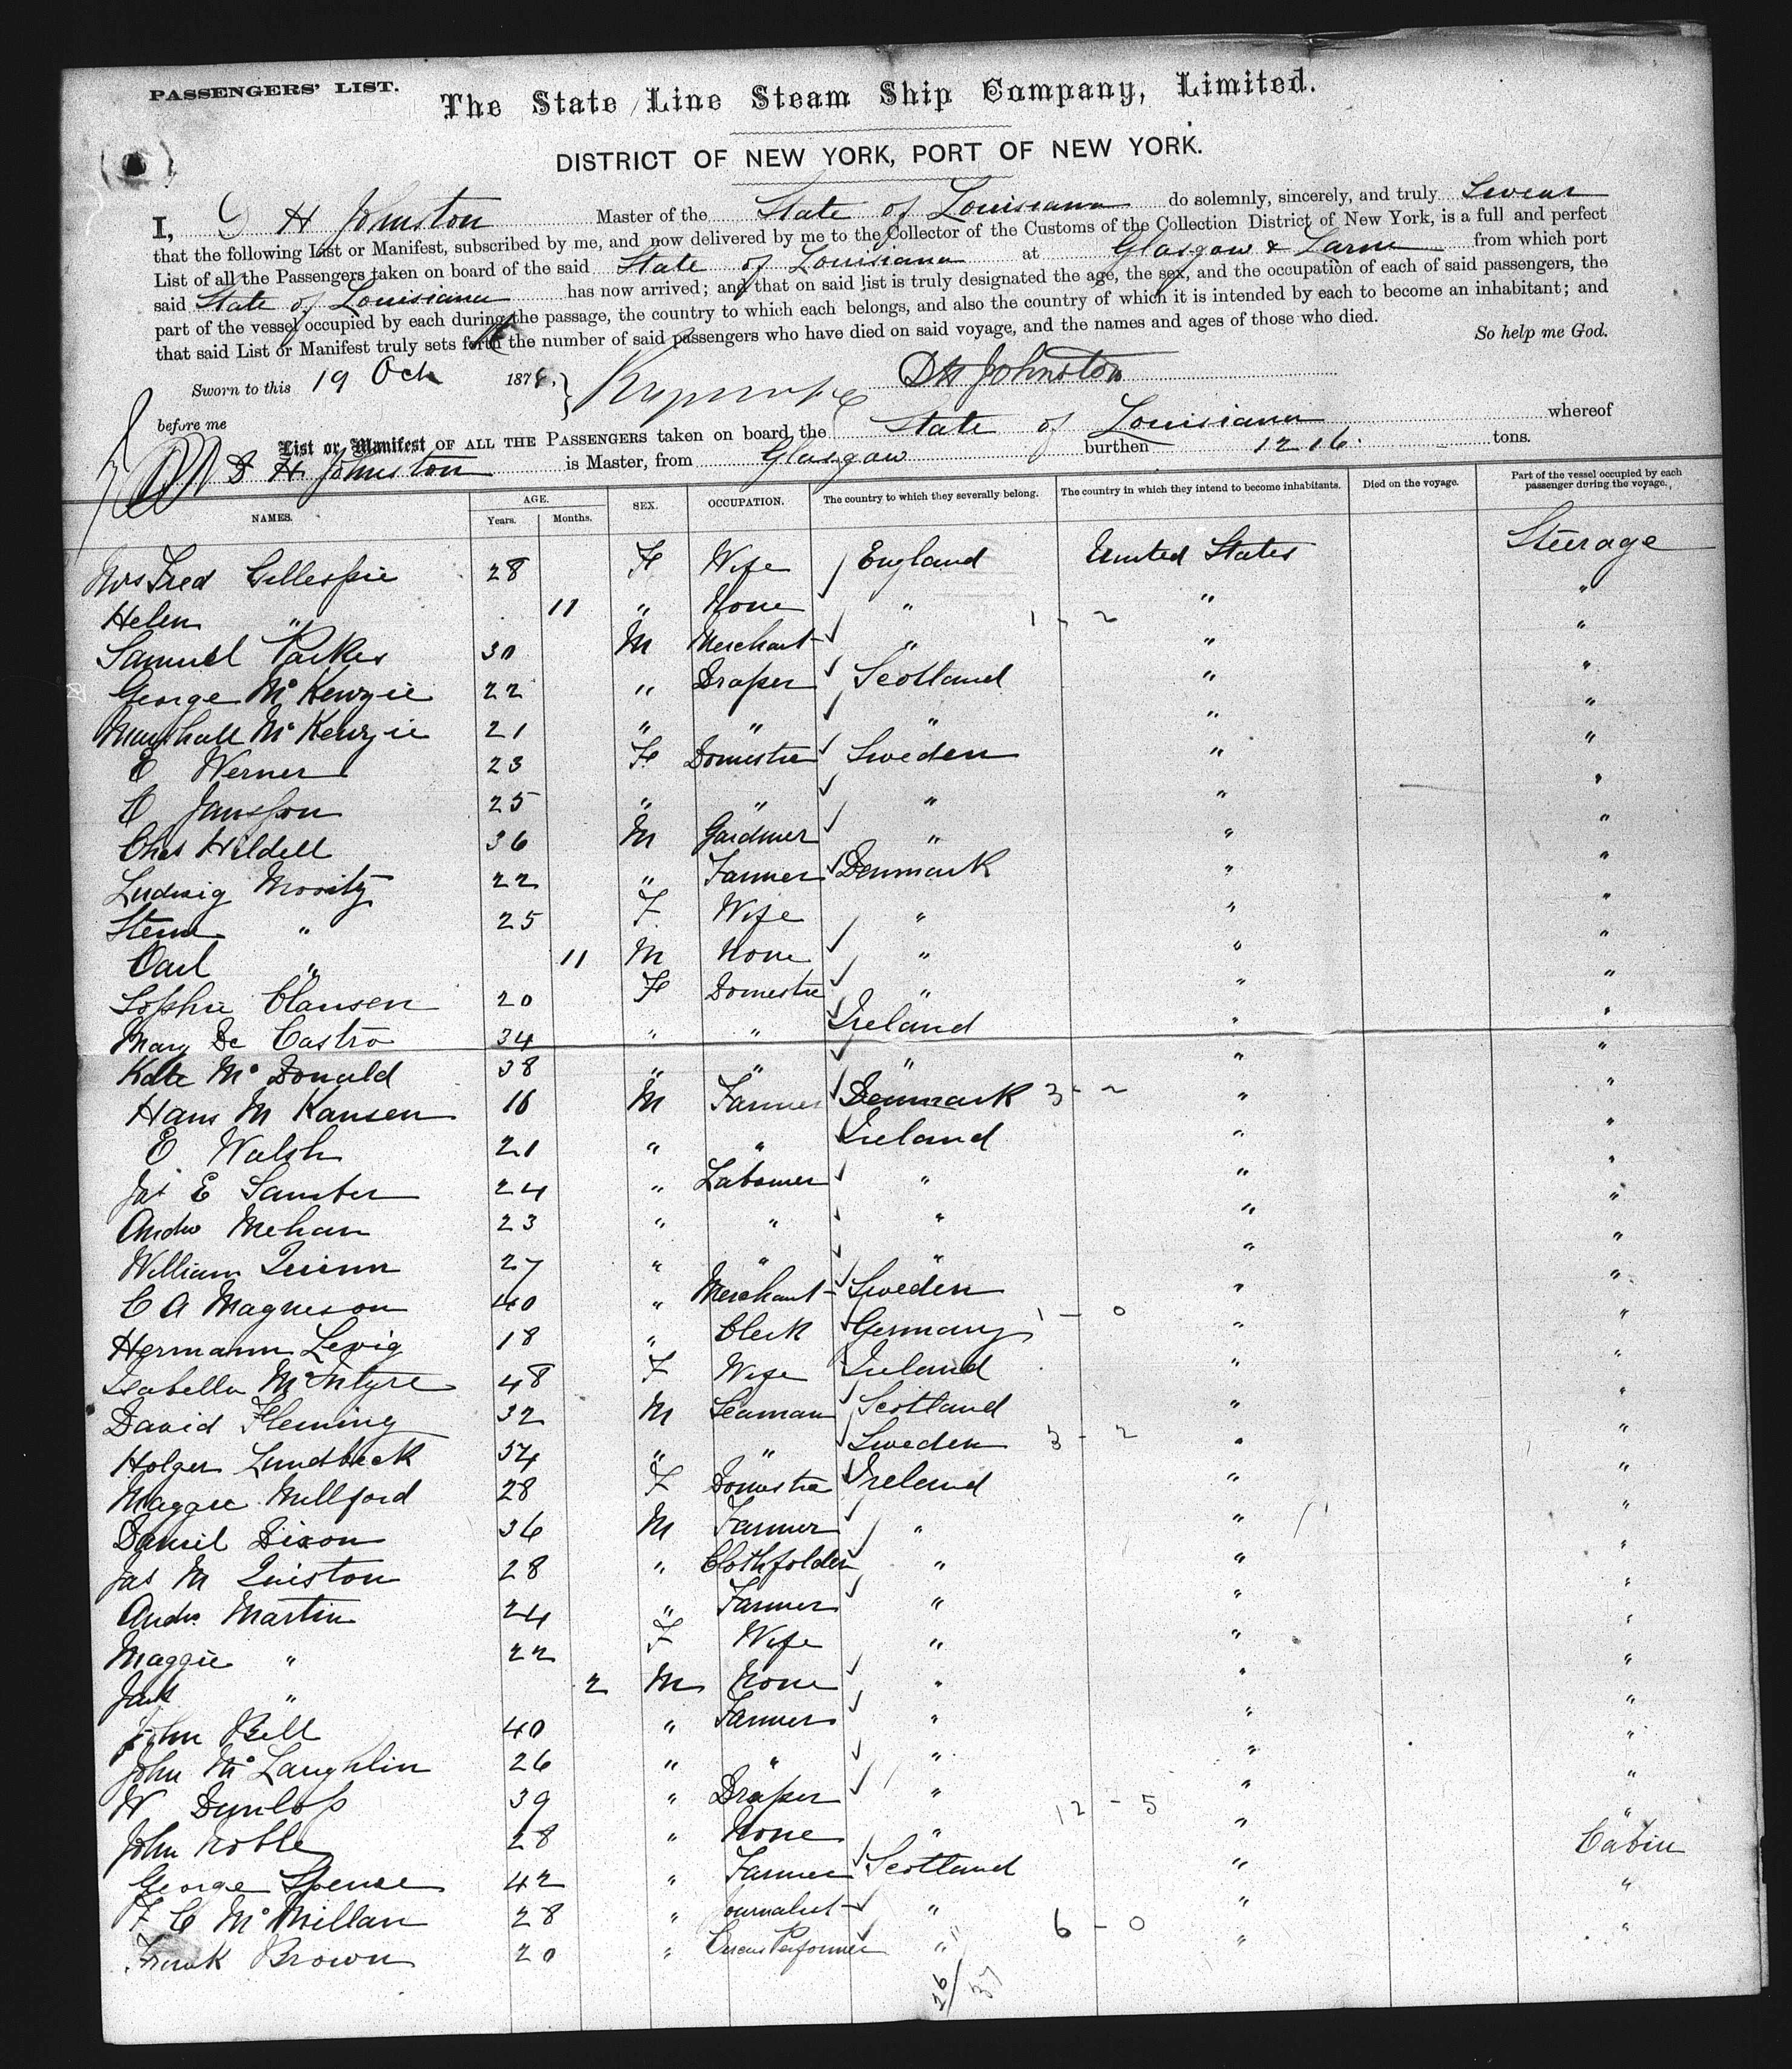 PASSENGERS' LIST.
The State Line Steam Ship Company, Limited.
DISTRICT OF NEW YORK, PORT OF NEW YORK.
I, D H Johnston Master of the State of Louisiana do solemnly, sincerely, and truly Swear
that the following List or Manifest, subscribed by me, and now delivered by me to the Collector of the Customs of the Collection District of New York, is a full and perfect
List of all the Passengers taken on board of the said State of Louisiana at Glasgow & Larne from which port
said State of Louisiana has now arrived; and that on said list is truly designated the age, the sex, and the occupation of each of said passengers, the
part of the vessel occupied by each during the passage, the country to which each belongs, and also the country of which it is intended by each to become an inhabitant; and
that said List or Manifest truly sets forth the number of said passengers who have died on said voyage, and the names and ages of those who died.
So help me God.
Sworn to this 19 Oct 187 DH Johnston
before me
List or Manifest OF ALL THE PASSENGERS taken on board the State of Louisiana whereof
D H Johnston is Master, from Glasgow burthen 1216 tons.
NAMES. AGE. Years. Months. SEX. OCCUPATION. The country to which they severally belong. The country in which they intend to become inhabitants. Died on the voyage. Part of the vessel occupied by each passenger during the voyage.
Mrs Fred Gillespie 28 F Wife England United States Steerage
Helen " 11 " None " " "
1 - 2
Samuel Parker 30 M Merchant " " "
George McKenzie 22 " Draper Scotland " "
Marshall McKenzie 21 " " " " "
E Werner 23 F Domestic Sweden " "
C Jansson 25 " " " " "
Chas Hildell 36 M Gardiner " " "
Ludwig Moritz 22 " Farmer Denmark " "
" 25 F Wife " " "
Carl " 11 M None " " "
Sophie Clausen 20 F Domestic " " "
Mary De Castro 34 " " Ireland " "
Kate McDonald 38 " " " " "
Hans M Kansen 16 M Farmer Denmark 3 - 2 " "
E Walsh 21 " " Ireland " "
Jas E 24 " Labourer " " "
Andw Mehan 23 " " " " "
William Quinn 27 " " " " "
C A Magneson 40 " Merchant Sweden " "
Hermann Levig 18 " Clerk Germany 1 - 0 " "
Isabella McIntyre 48 F Wife Ireland " "
David Fleming 32 M Seaman Scotland " "
Holger Lundbeck 54 " " Sweden 3 - 2 " "
Maggie Millford 28 F Domestic Ireland " "
Daniel Dixon 36 M Farmer " " "
Jas M Quiston 28 " Clothfolder " " "
Andw Martin 24 " Farmer " " "
Maggie " 22 F Wife " " "
Jack " 2 M None " " "
John Bell 40 " Farmer " " "
John McLaughlin 26 " " " " "
W Dunlop 39 " Draper " " "
12 - 5
John Noble 28 " None " " "
George Spence 42 " Farmer Scotland " Cabin
F C McMillan 28 " Journalist " " "
6 - 0
Frank Brown 20 " Circus Performer " " "
26/37